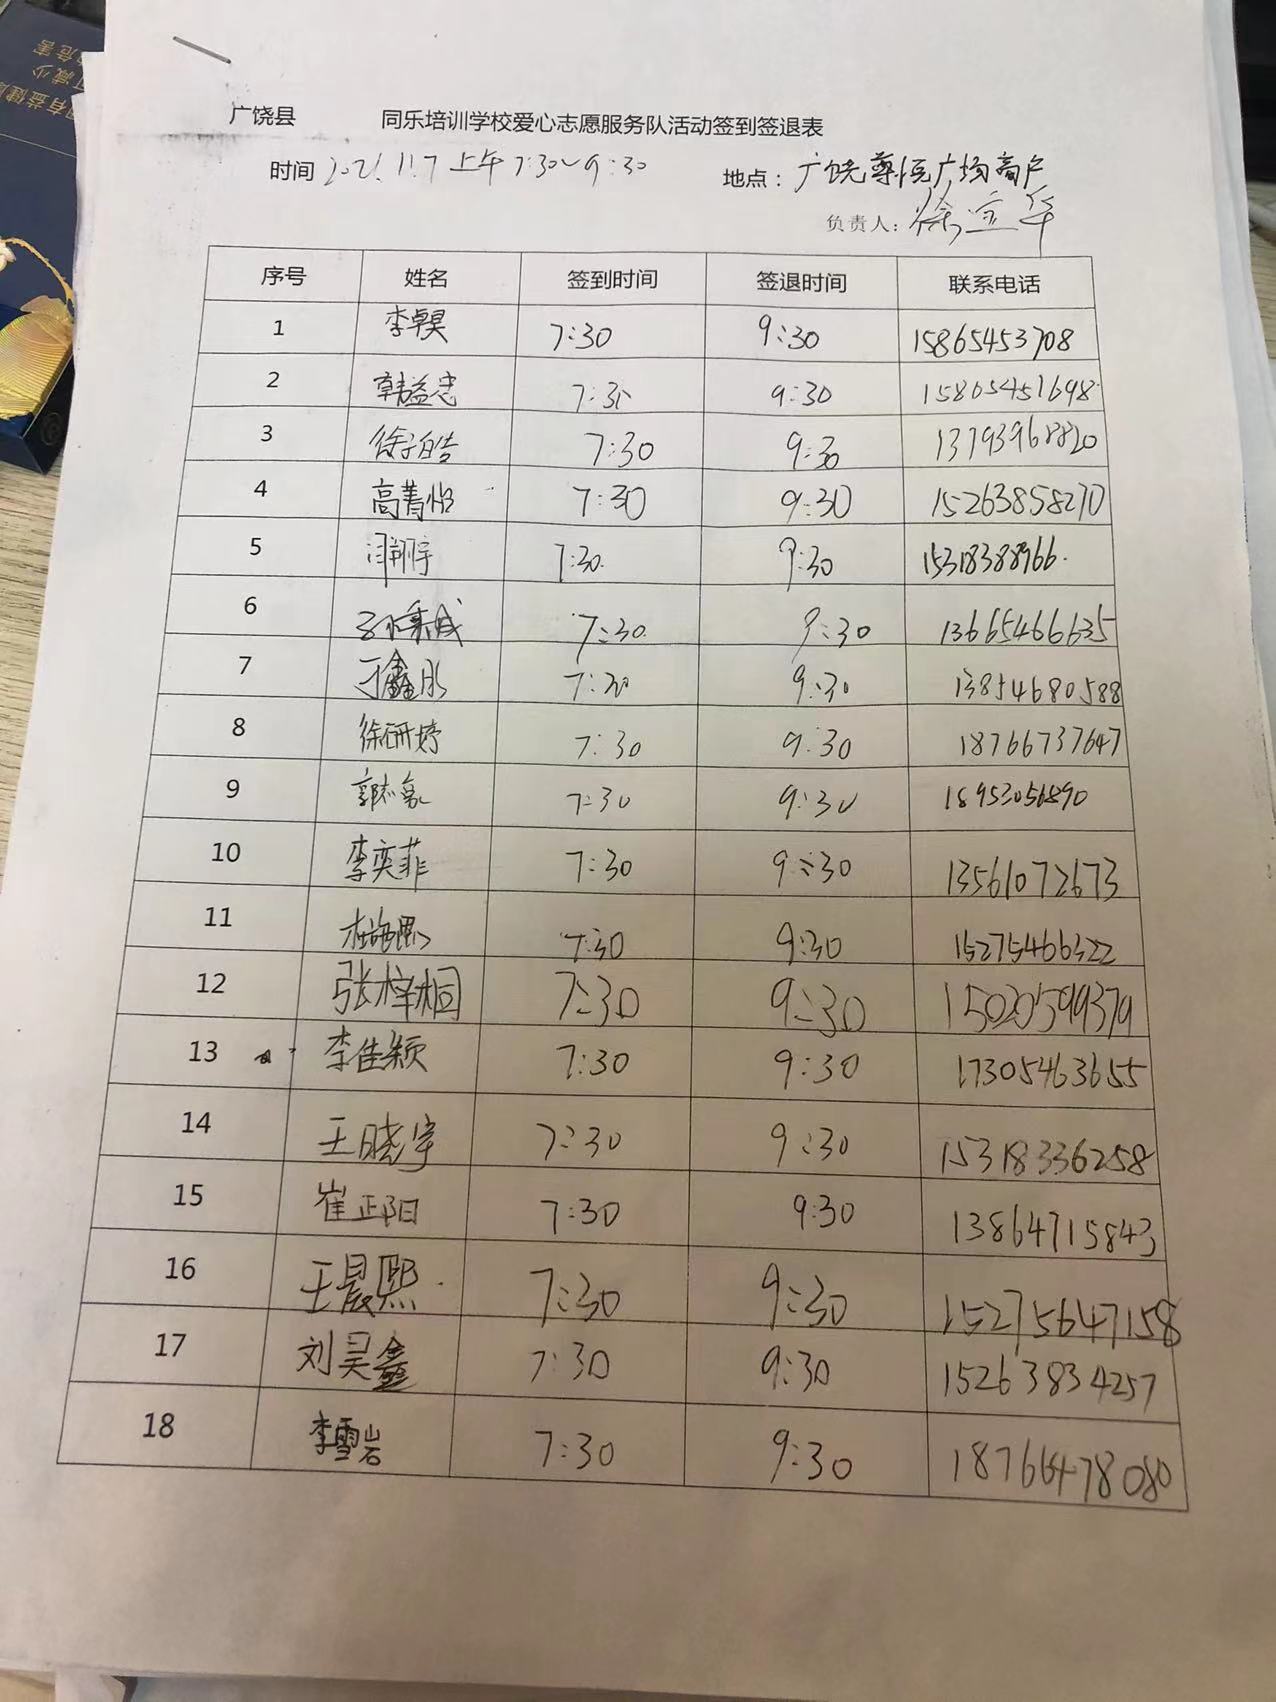 广饶县 同乐培训学校爱心志愿服务队活动签到签退表
时间 2021.11.7 上午 7:30~9:30 地点：广饶尊悦广场商户
负责人：徐
序号 姓名 签到时间 签退时间 联系电话
1 李卓昊 7:30 9:30 15865453708
2 韩益忠 7:30 9:30 15805451698
3 徐子皓 7:30 9:30 13793968820
4 高菁怡 7:30 9:30 15263858270
5 7:30 9:30 15318388966
6 7:30 9:30 13665466635
7 于鑫彤 7:30 9:30 13854680588
8 徐研婷 7:30 9:30 18766737647
9 7:30 9:30 18953056890
10 李奕菲 7:30 9:30 13561072673
11 7:30 9:30 15275466322
12 张梓桐 7:30 9:30 15020599379
13 李佳颖 7:30 9:30 17305463655
14 王晓宇 7:30 9:30 15318336258
15 崔正阳 7:30 9:30 13864715843
16 王晨熙 7:30 9:30 15275647158
17 刘昊鑫 7:30 9:30 15263834257
18 李雪岩 7:30 9:30 18766478080